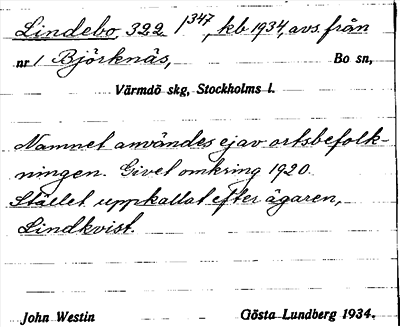 Lindebo, 322 1347, kb 1934, avs. från
nr 1 Björknäs, Bo sn,
Värmdö skg, Stockholms l.
Namnet användes ej av ortsbefolk-
ningen. Givet omkring 1920.
Stället uppkallat efter ägaren,
Lindkvist.
John Westin Gösta Lundberg 1934.